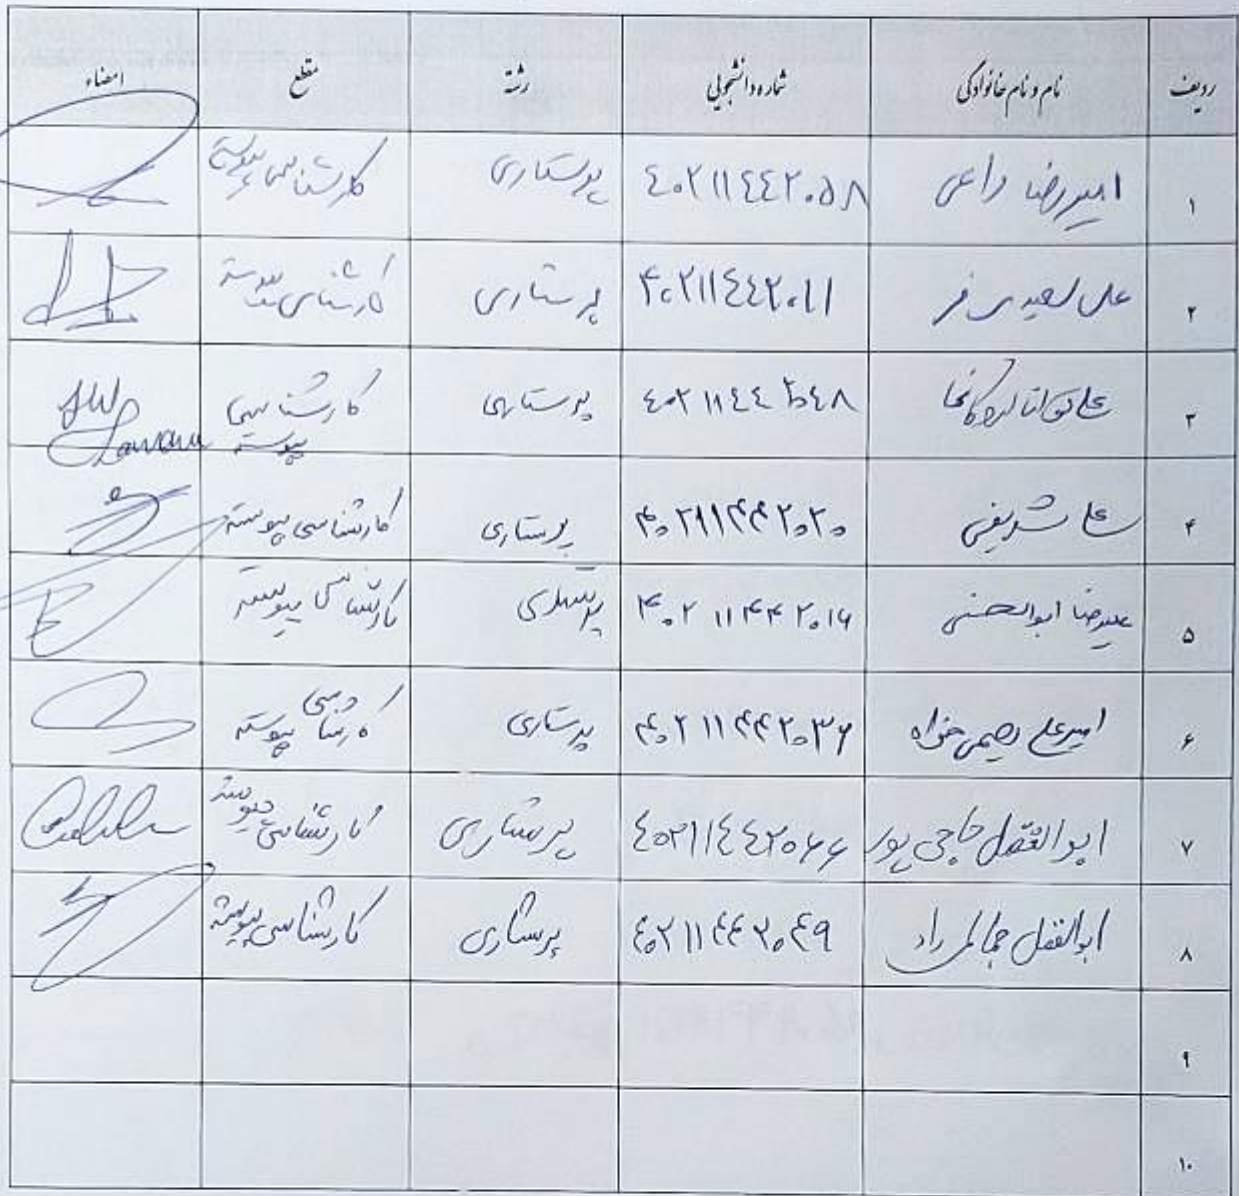 ردیف نام و نام خانوادگی شماره دانشجویی رشته مقطع امضاء
۱ امیررضا راعی ۴۰۲۱۱۴۴۲۰۵۸ پرستاری کارشناسی پیوسته
۲ علی سعیدی فر ۴۰۲۱۱۴۴۲۰۱۱ پرستاری کارشناسی پیوسته
۳ علی توانا ۴۰۲۱۱۴۴۲۰۴۸ پرستاری کارشناسی پیوسته
۴ علی شریفی ۴۰۲۱۱۴۴۲۰۲۰ پرستاری کارشناسی پیوسته
۵ علیرضا ابوالحسنی ۴۰۲۱۱۴۴۲۰۱۶ پرستاری کارشناسی پیوسته
۶ امیرعلی رحیمی خواه ۴۰۲۱۱۴۴۲۰۳۶ پرستاری کارشناسی پیوسته
۷ ابوالفضل حاجی پور ۴۰۲۱۱۴۴۲۰۶۶ پرستاری کارشناسی پیوسته
۸ ابوالفضل جمالی راد ۴۰۲۱۱۴۴۲۰۴۹ پرستاری کارشناسی پیوسته
۹
۱۰